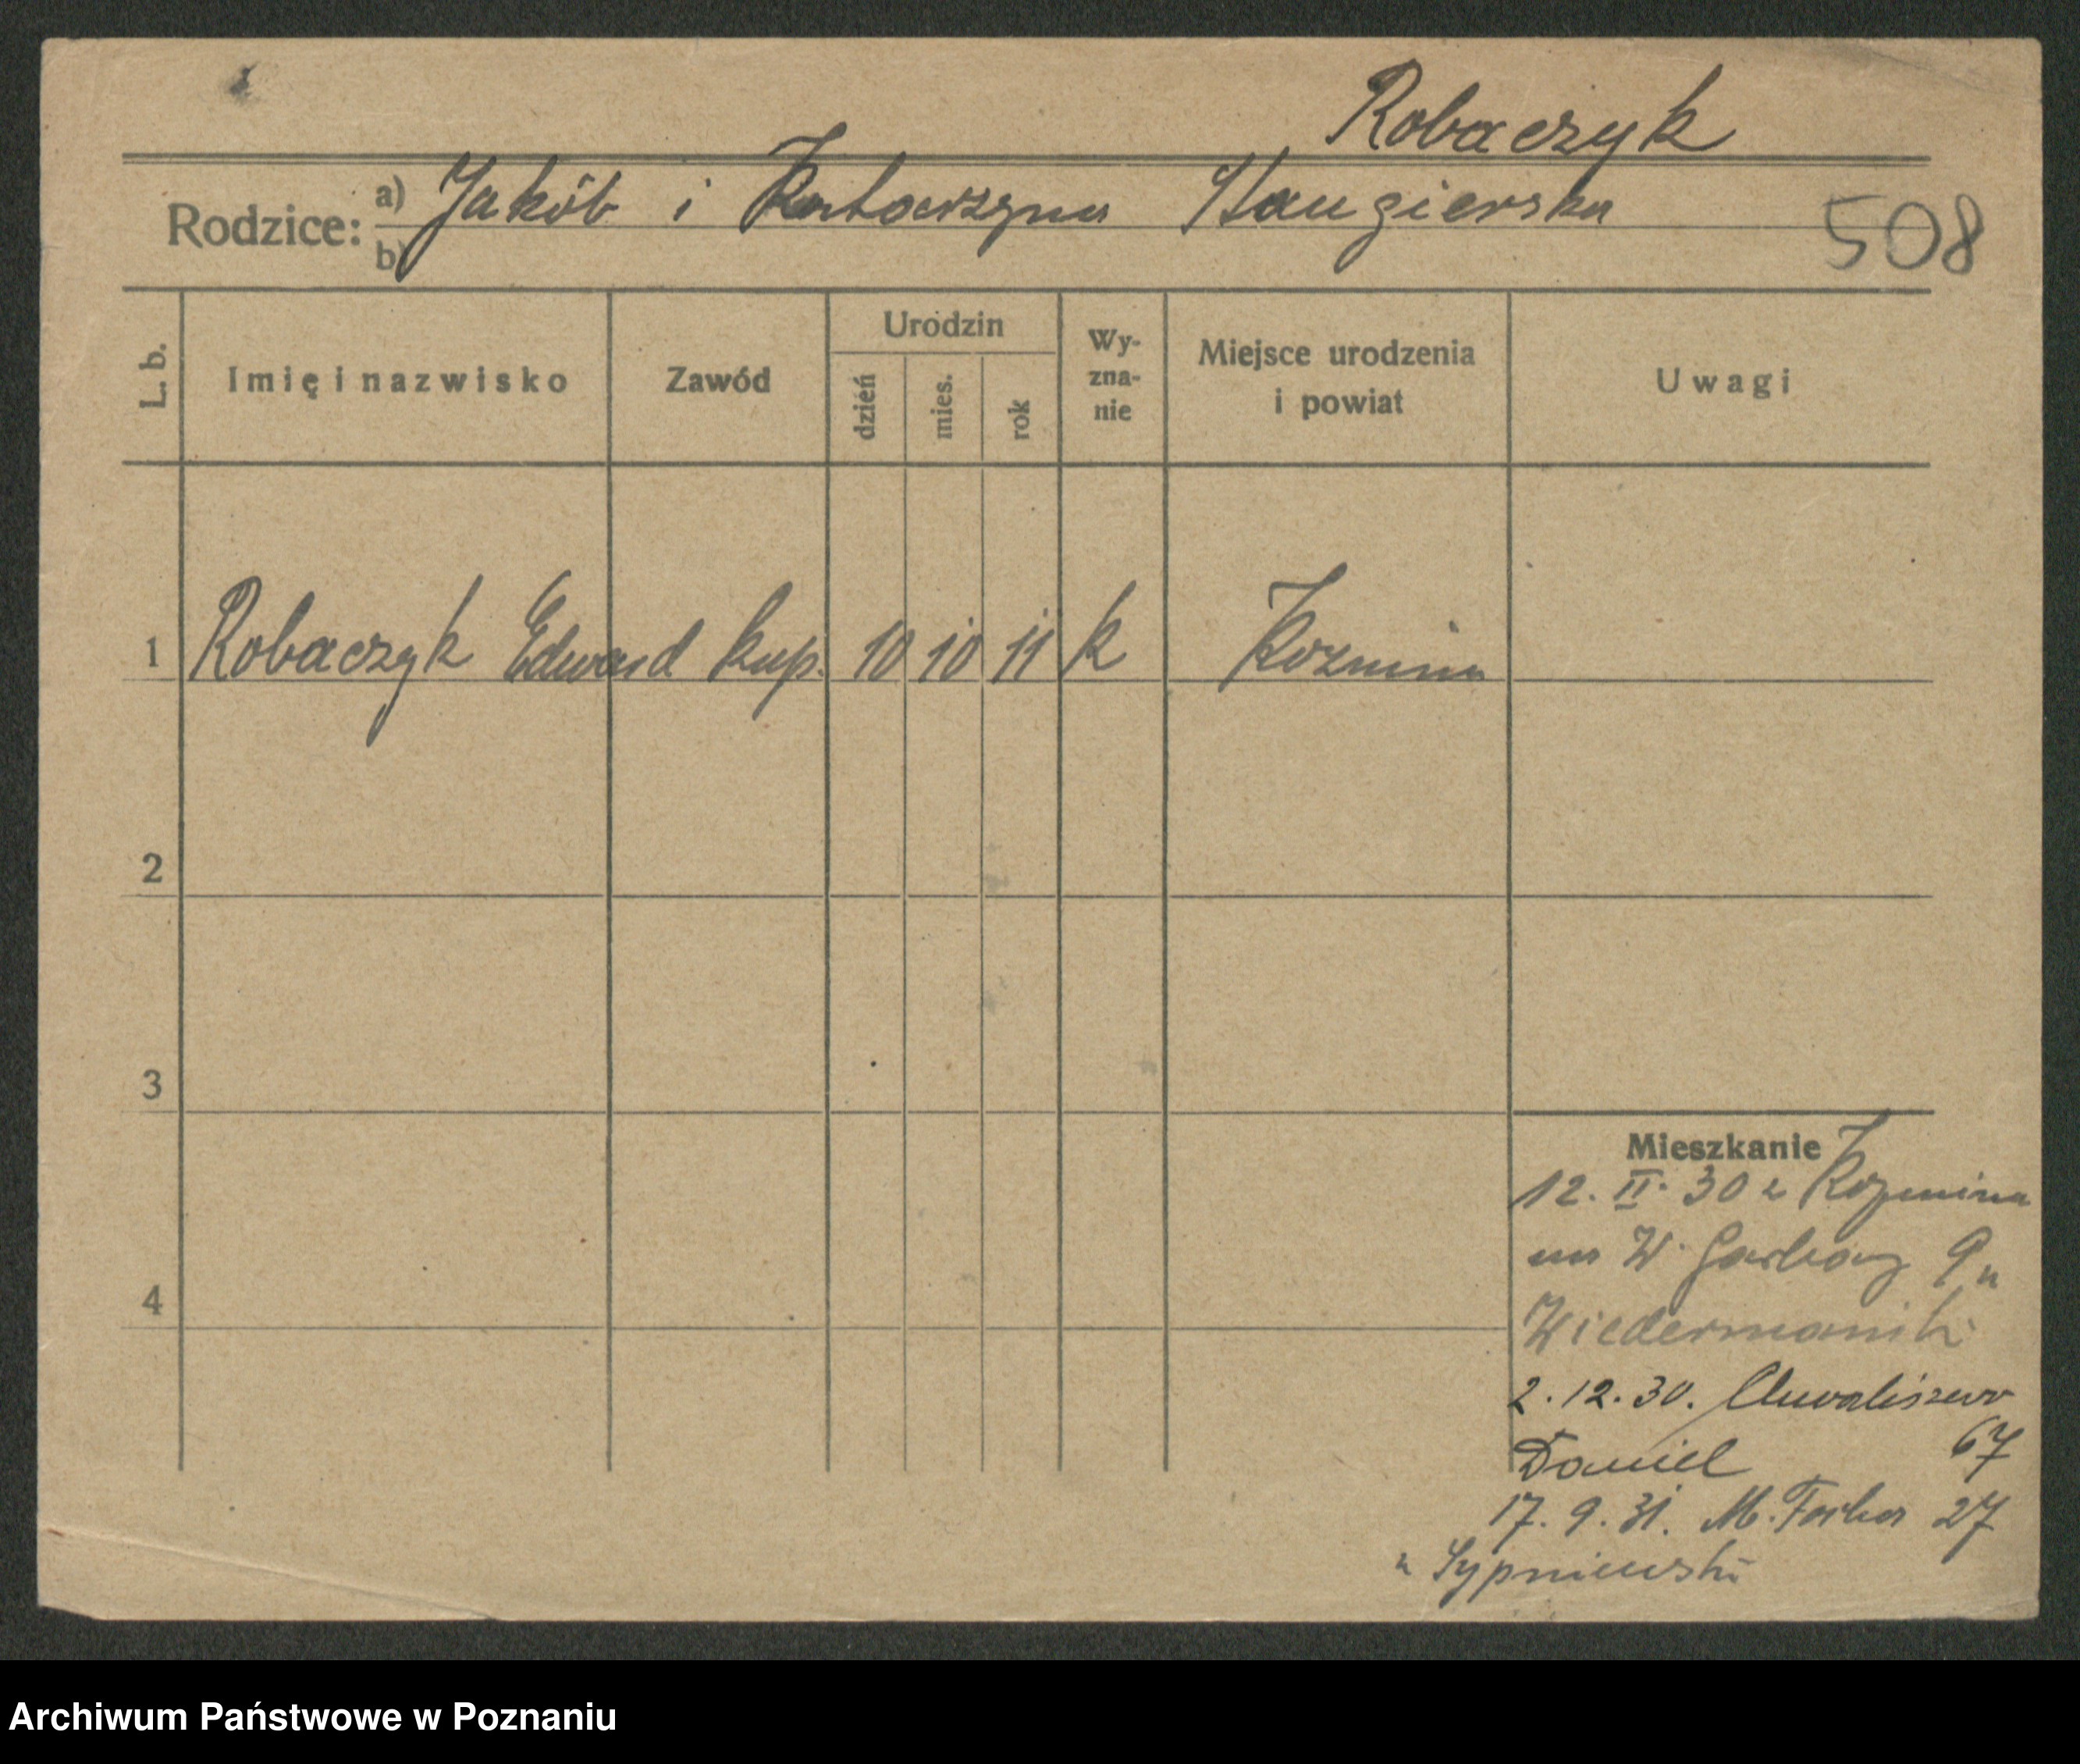 Robaczyk
Rodzice: a) Jakób i Katarzyna Staugierska
b)
508
L. b.
Imię i nazwisko
Zawód
Urodzin
dzień
mies.
rok
Wy-
zna-
nie
Miejsce urodzenia
i powiat
Uwagi
1 Robaczyk Edward kup. 10 10 11 k Kozmin
2
3
4
Mieszkanie
12. II. 30 z Kozmina
na W. Garbary 9 u
2.12.30. Chwaliszewo
Daniel 67
17. 9. 31. M. 27
u Sypniewski
Archiwum Państwowe w Poznaniu